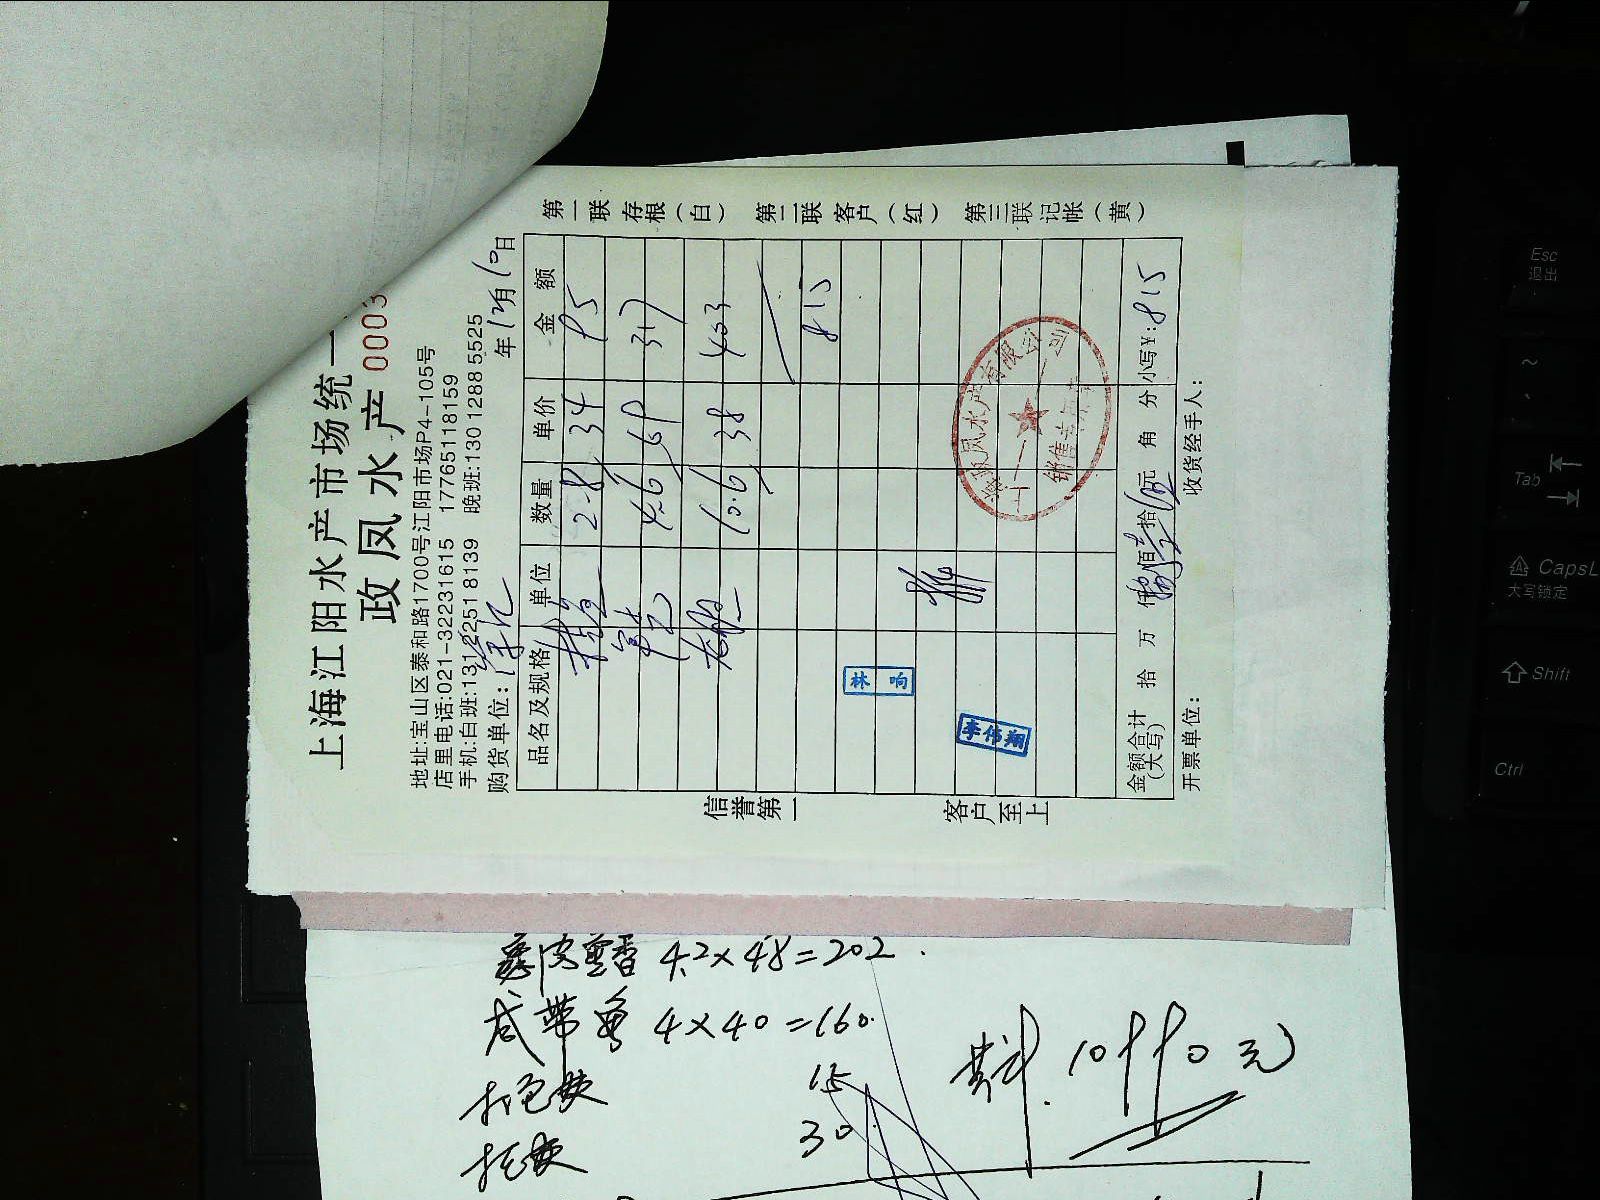 上海江阳水产市场统一
政凤水产 0003
地址:宝山区泰和路1700号江阳市场P4-105号
店里电话:021-32231615 17765118159
手机:白班:13122518139 晚班:13012885525
购货单位: 年12月10日
品名及规格 单位 数量 单价 金额
2.8 34 95
4.6 69 317
龙虾 10.6 38 403
815
林响
李伟翔
销售专用章
金额合计(大写) 拾 万 仟 捌佰壹拾伍元 角 分 小写¥:815
开票单位: 收货经手人:
第一联 存根(白) 第二联 客户(红) 第三联 记帐(黄)
信誉第一 客户至上
4.2×48=202.
咸带鱼 4×40=160.
打包费 15
托费 30
共计. 10990元
Esc
退出
~
Tab
CapsL
大写锁定
Shift
Ctrl